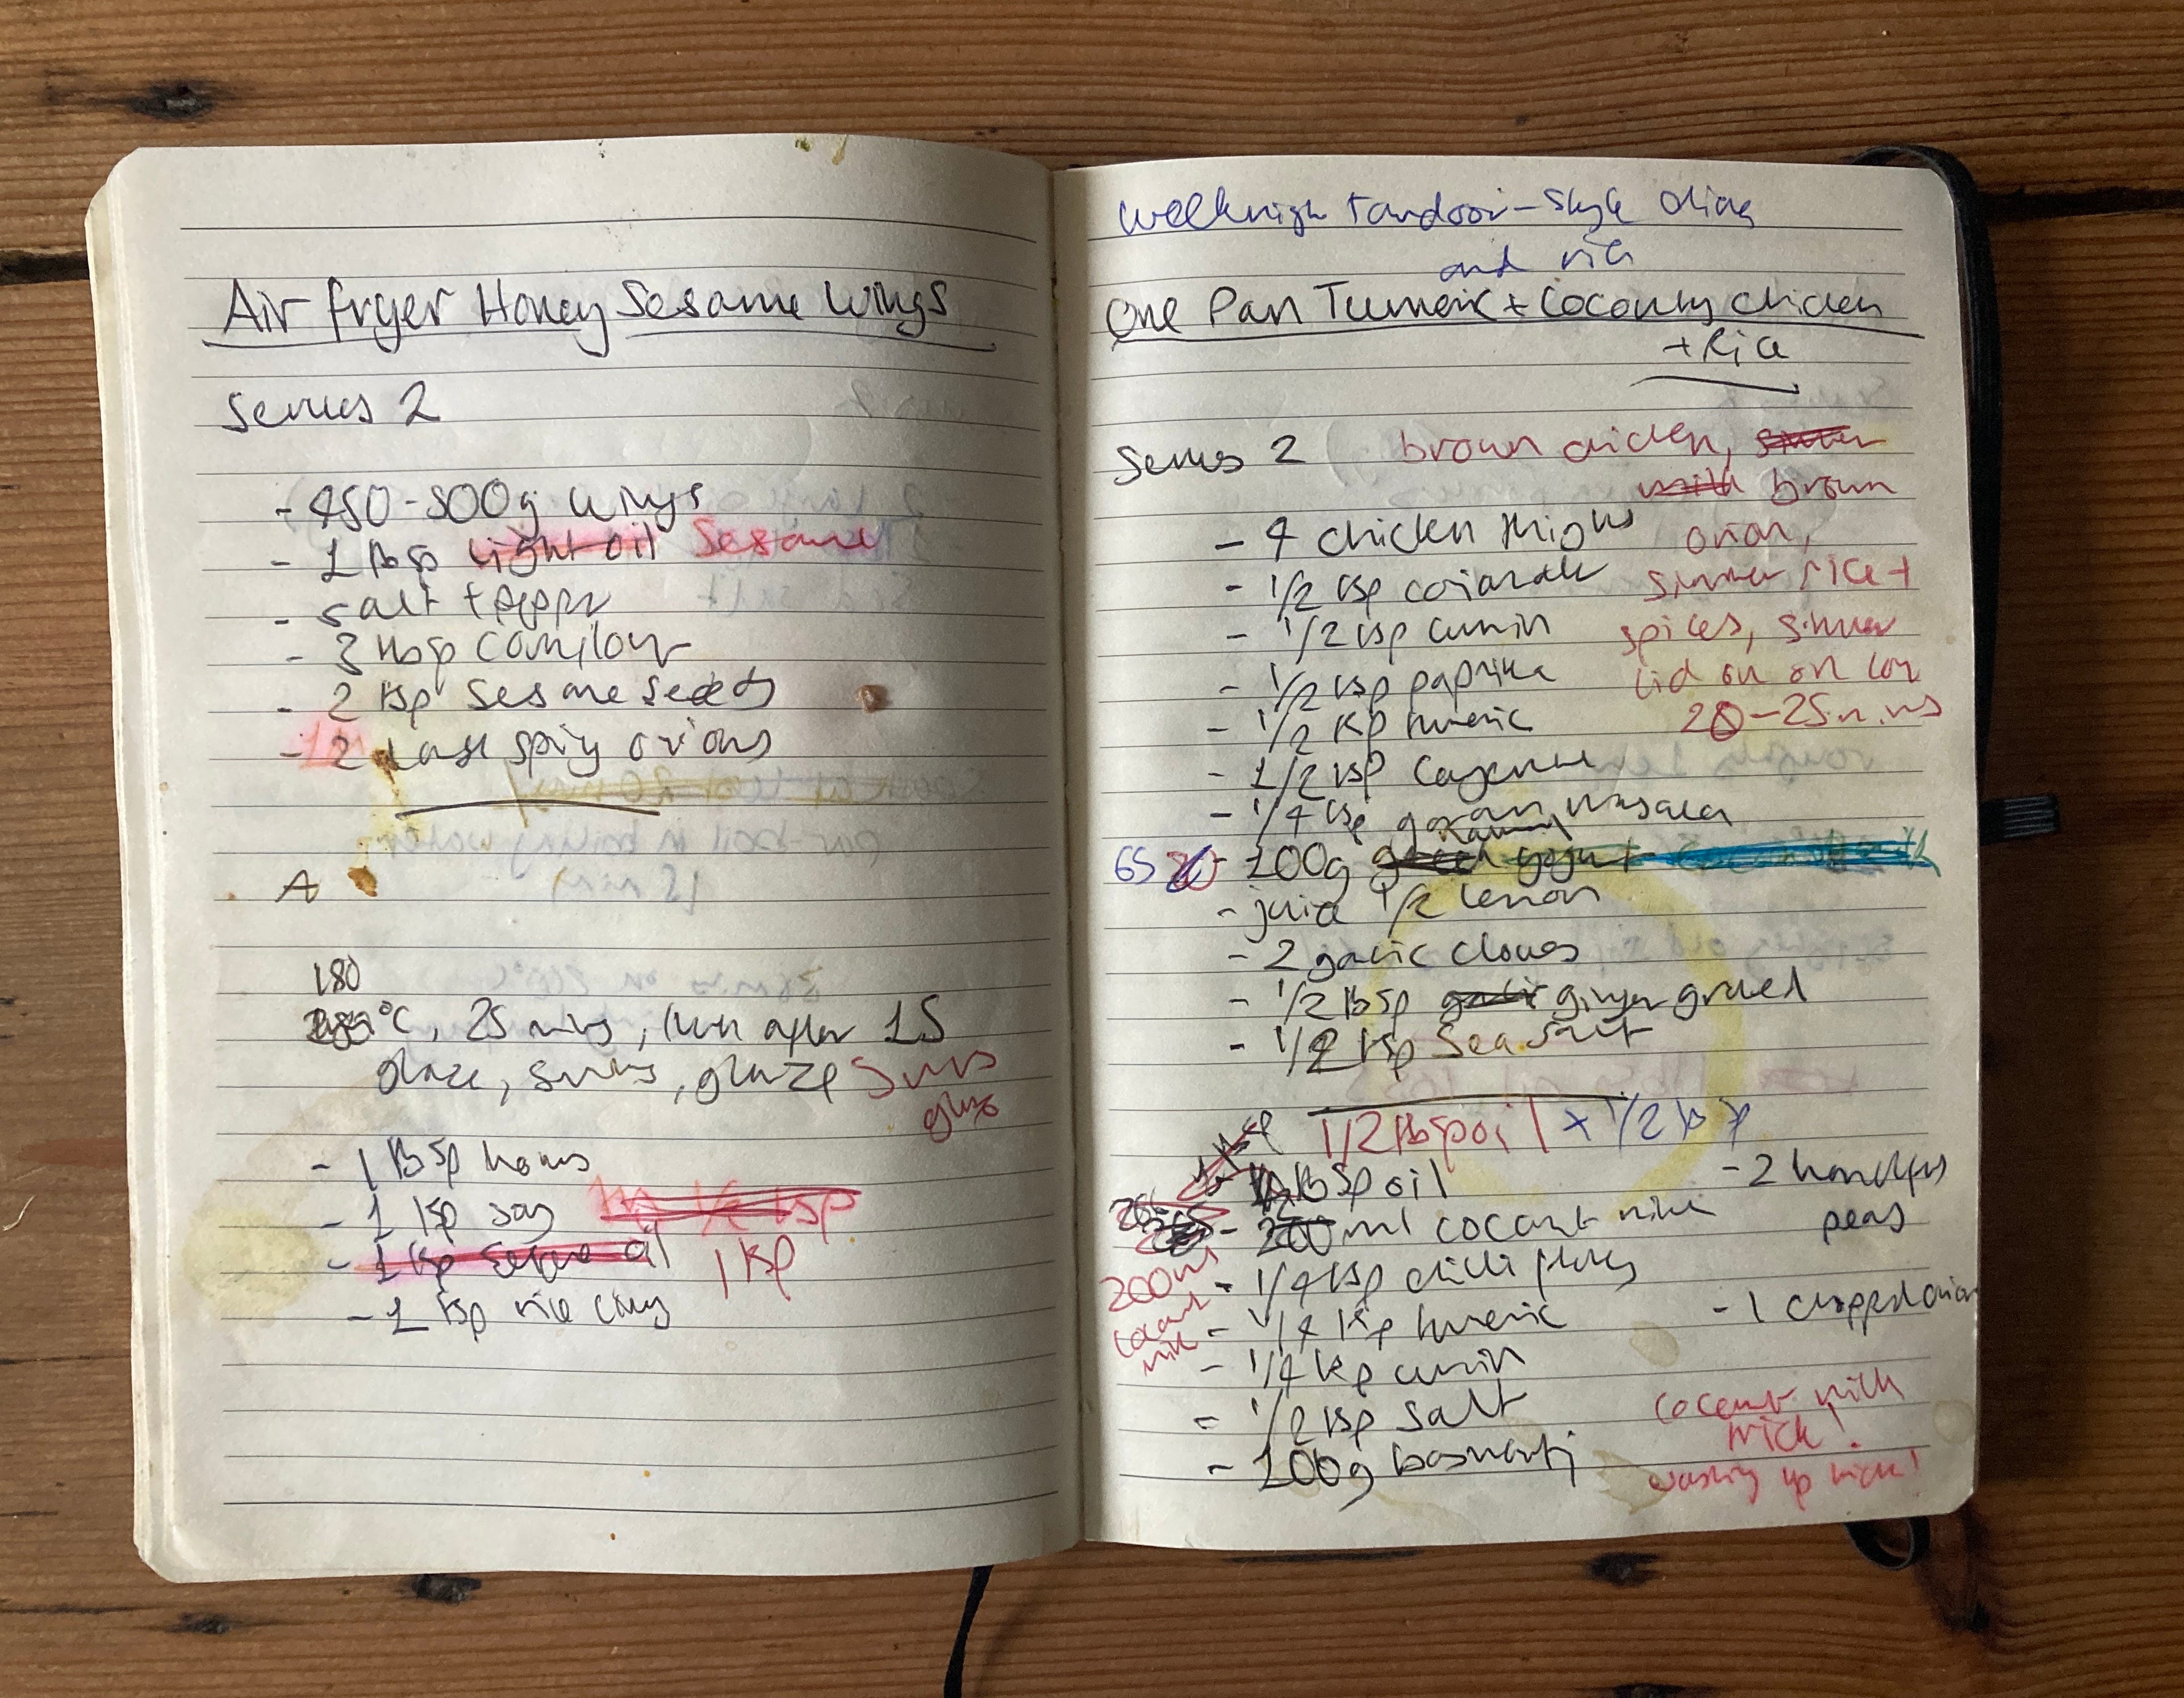 Air fryer Honey Sesame Wings
Serves 2
- 450-500g wings
- 1 tbsp light oil Sesame
- salt + pepper
- 3 tbsp cornflour
- 2 tsp sesame seeds
- 2 spring onions
A
180
°C, 25 mins, turn after 15
glaze, 5 mins, glaze 5 mins
glaze
- 1 tbsp honey
- 1 tsp soy 1/2 tsp
- 1 tsp sesame oil 1 tsp
- 1 tsp rice
Weeknight Tandoori-Style
and rice
One Pan Turmeric + Coconut Chicken
+ Rice
Serves 2 brown chicken, simmer
brown
- 4 chicken thighs onion,
- 1/2 tsp coriander simmer rice +
- 1/2 tsp cumin spices, simmer
- 1/2 tsp paprika lid on on low
- 1/2 tsp tumeric 20-25 mins
- 1/2 tsp cayenne
- 1/4 tsp garam masala
65 - 100g greek yogurt
- juice 1/2 lemon
- 2 garlic cloves
- 1/2 tbsp garlic ginger grated
- 1/2 tsp sea salt
1/2 tbsp oil + 1/2 tbsp
- tbsp oil - 2 handfuls
- 200ml coconut milk peas
200ml
coconut
milk
- 1/4 tsp chilli flakes
- 1/4 tsp tumeric - 1 chopped onion
- 1/4 tsp cumin
- 1/2 tsp salt coconut milk
trick!
- 100g basmati washing up trick!